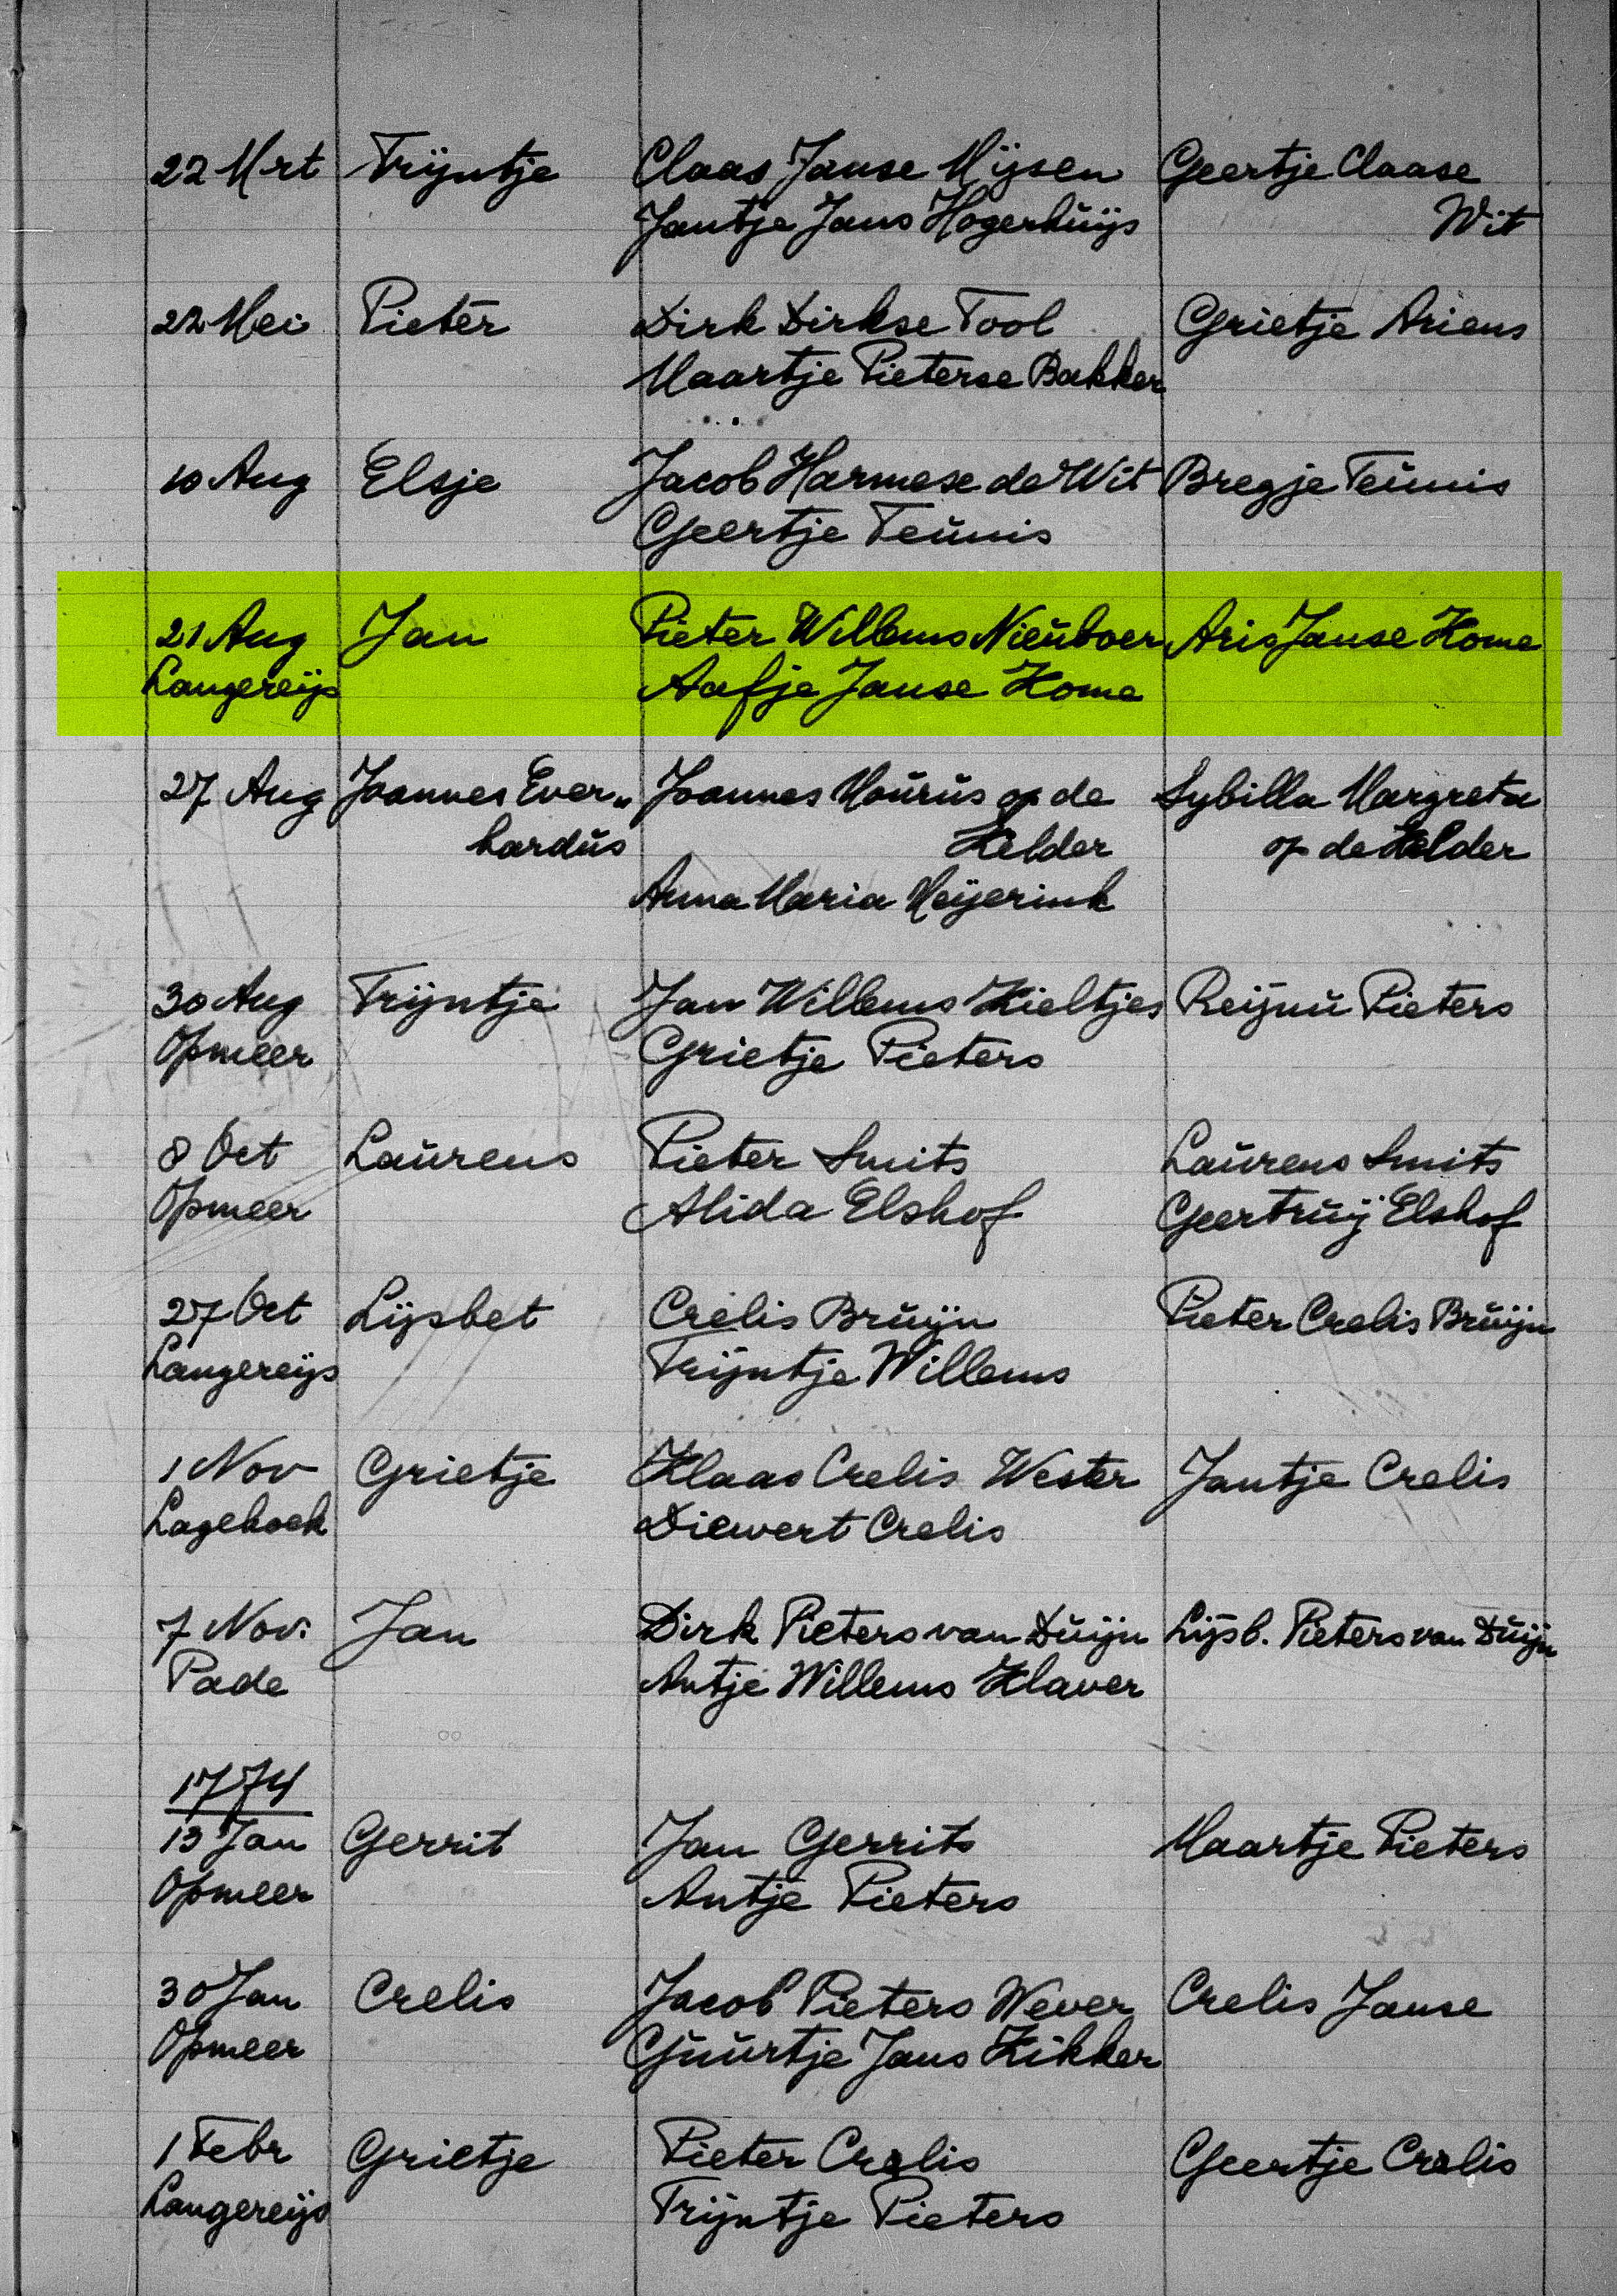 22 Mrt Trijntje Claas Janse Mijsen Geertje Claase
Jantje Jans Hogerhuijs Wit
22 Mei Pieter Dirk Dirkse Tool Grietje Ariens
Maartje Pieterse Bakker
10 Aug Elsje Jacob Harmese de Wit Bregje Teunis
Geertje Teunis
21 Aug Jan Pieter Willems Nieuboer Aris Janse Kome
Langereijs Aafje Janse Kome
27 Aug Joannes Ever„ Joannes Maurus op de Sybilla Margreta
hardus Kelder op de Kelder
Anna Maria Meijerink
30 Aug Trijntje Jan Willems Kieltjes Reijnu Pieters
Opmeer Grietje Pieters
8 Oct Laurens Pieter Smits Laurens Smits
Opmeer Alida Elshof Geertruij Elshof
27 Oct Lijsbet Crelis Bruijn Pieter Crelis Bruijn
Langereijs Trijntje Willems
1 Nov Grietje Klaas Crelis Wester Jantje Crelis
Lagehoek Diewert Crelis
7 Nov. Jan Dirk Pieters van Duijn Lijsb. Pieters van Duijn
Pade Antje Willems Klaver
1774
13 Jan Gerrit Jan Gerrits Maartje Pieters
Opmeer Antje Pieters
30 Jan Crelis Jacob Pieters Wever Crelis Janse
Opmeer Guurtje Jans Kikker
1 Febr Grietje Pieter Crelis Geertje Crelis
Langereijs Trijntje Pieters